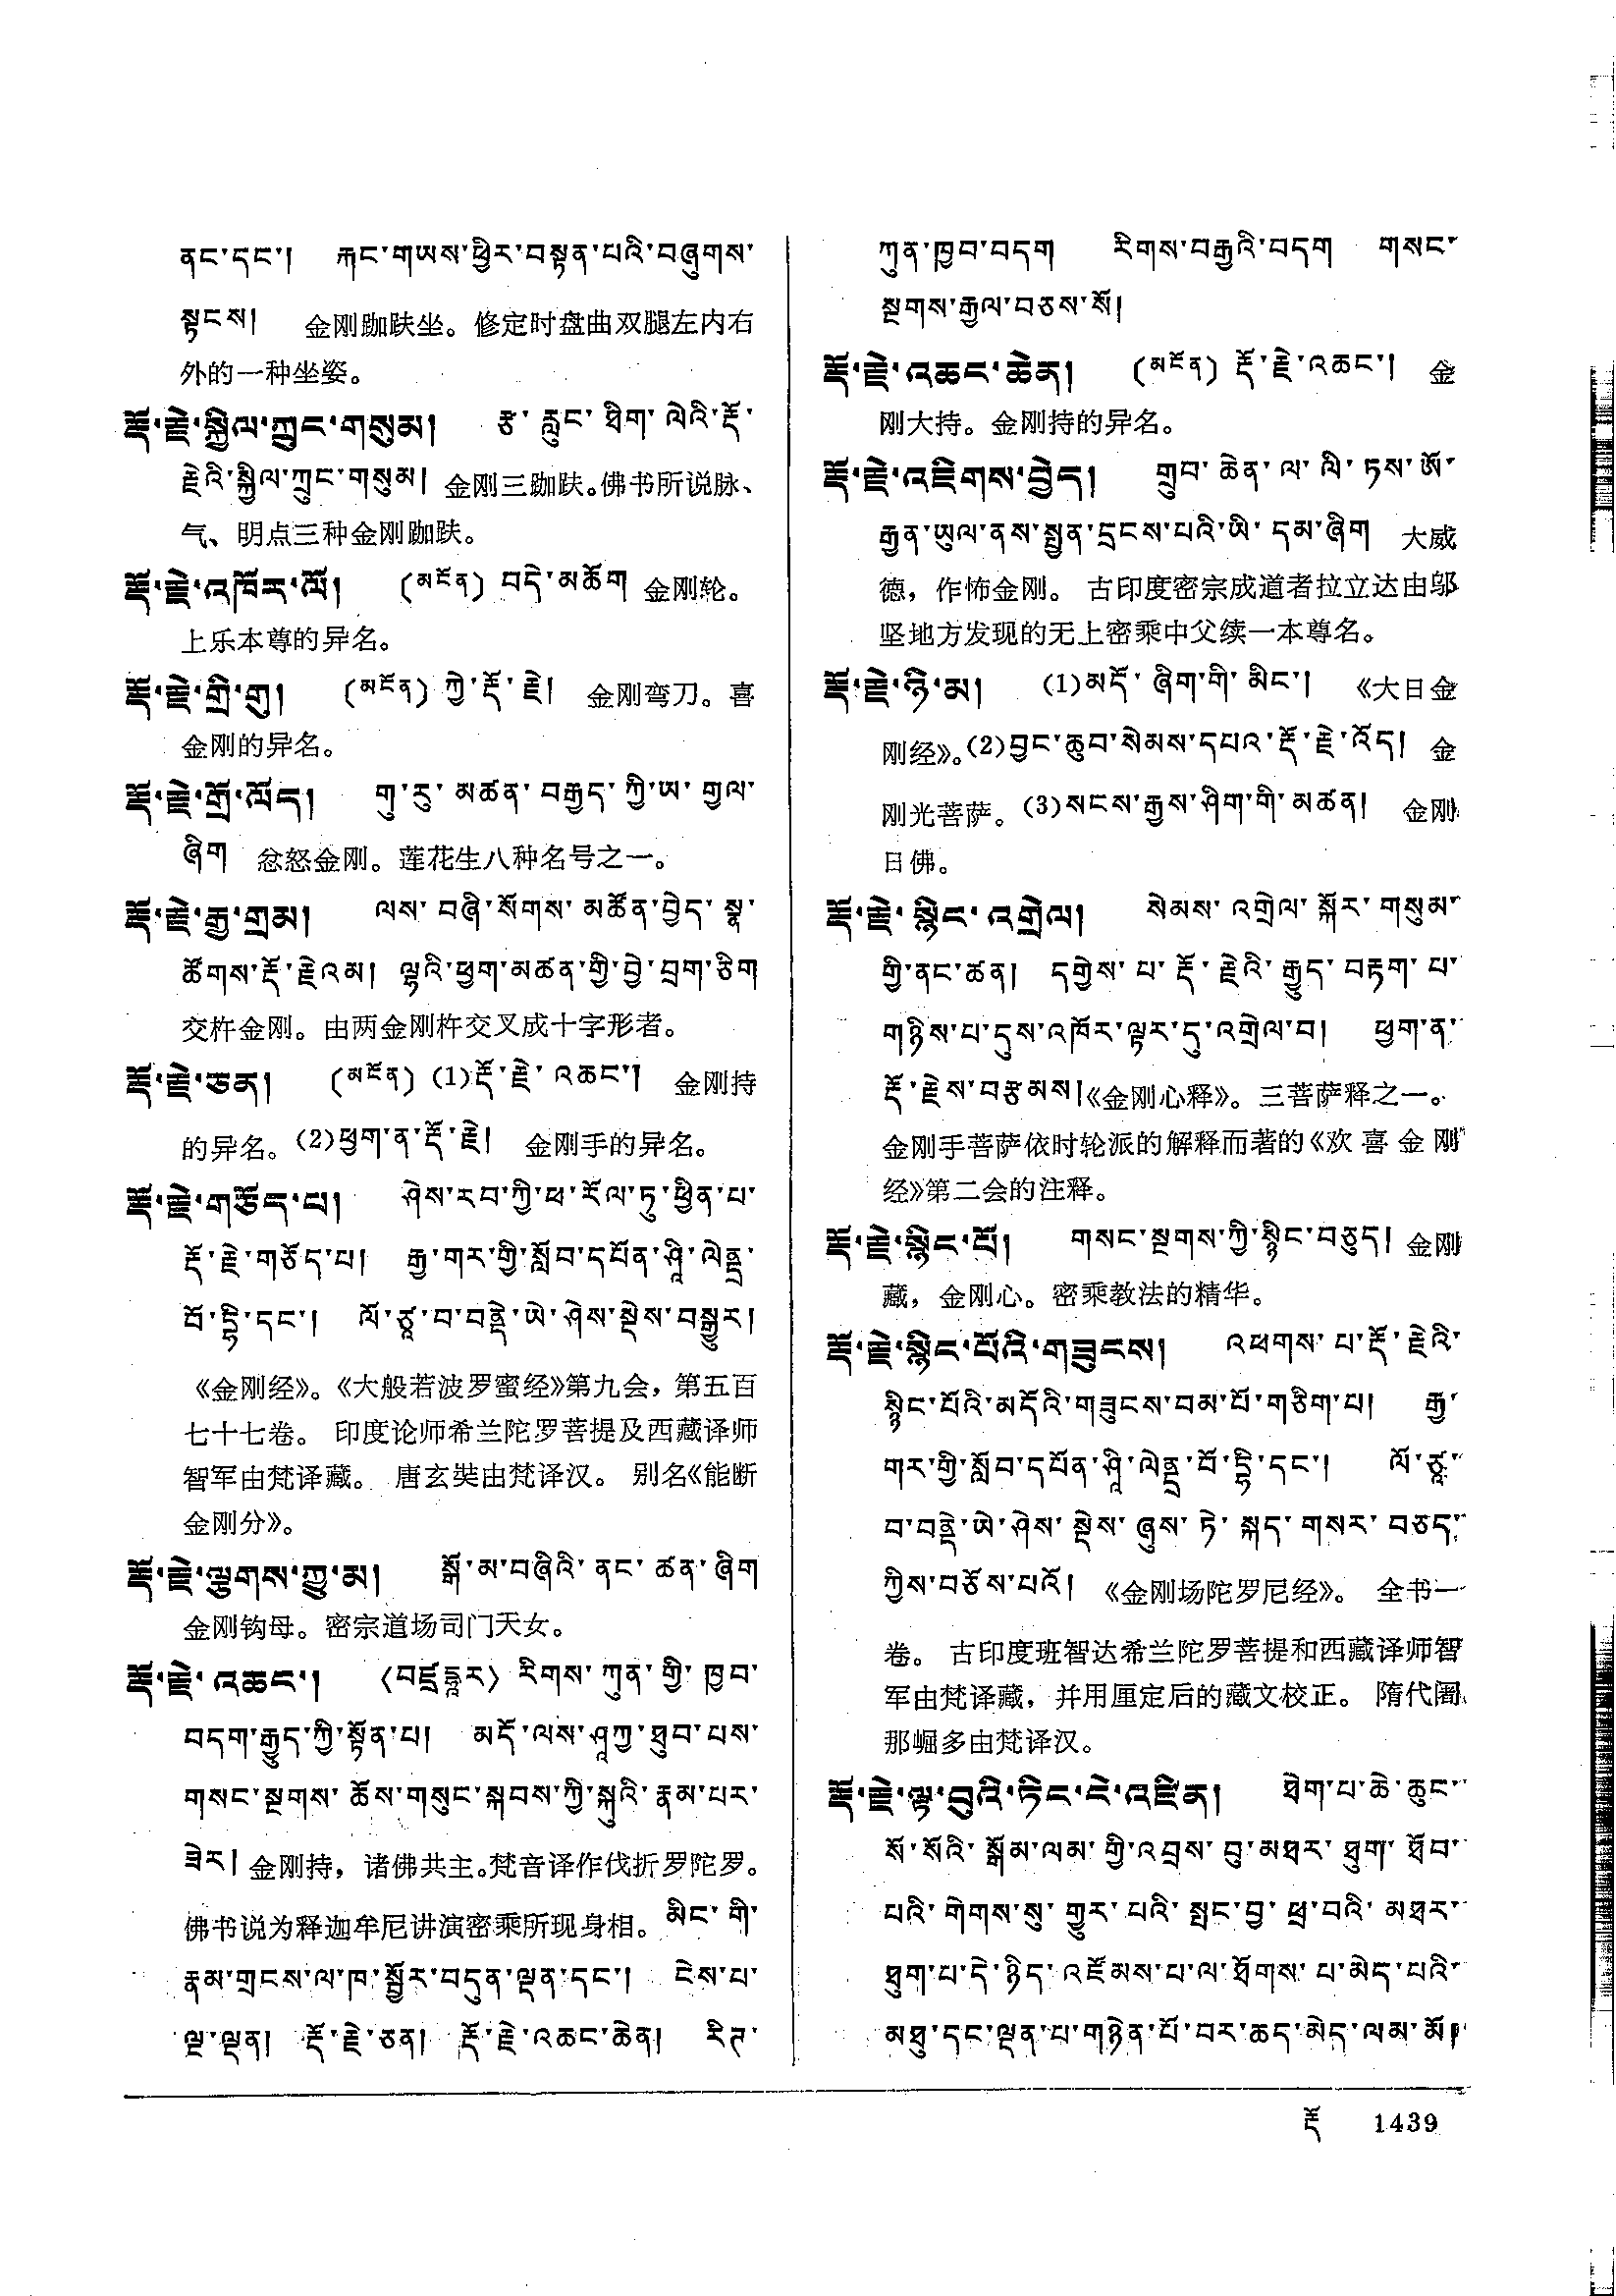 ནང་དང་། རྐང་གཡས་ཕྱིར་བསྟན་པའི་བཞུགས་
སྟངས། 金刚跏趺坐。修定时盘曲双腿左内右
外的一种坐姿。
རྡོ་རྗེ་སྐྱིལ་ཀྲུང་གསུམ། རྩ་ རླུང་ ཐིག་ ལེའི་རྡོ་
རྗེའི་སྐྱིལ་ཀྲུང་གསུམ། 金刚三跏趺。佛书所说脉、
气、明点三种金刚跏趺。
རྡོ་རྗེ་འཁོར་ལོ། (མངོན) བདེ་མཆོག 金刚轮。
上乐本尊的异名。
རྡོ་རྗེ་གྲི་གུ། (མངོན) ཀྱེ་རྡོ་རྗེ། 金刚弯刀。喜
金刚的异名。
རྡོ་རྗེ་གྲོ་ལོད། གུ་རུ་མཚན་བརྒྱད་ཀྱི་ཡ་གྱལ་
ཞིག 忿怒金刚。莲花生八种名号之一。
རྡོ་རྗེ་རྒྱ་གྲམ། ལས་བཞི་སོགས་མཚོན་བྱེད་སྣ་
ཚོགས་རྡོ་རྗེའམ། ལྷའི་ཕྱག་མཚན་གྱི་བྱེ་བྲག་ཅིག
交杵金刚。由两金刚杵交叉成十字形者。
རྡོ་རྗེ་ཅན། (མངོན) (1)རྡོ་རྗེ་འཆང་། 金刚持
的异名。(2)ཕྱག་ན་རྡོ་རྗེ། 金刚手的异名。
རྡོ་རྗེ་གཅོད་པ། ཤེས་རབ་ཀྱི་ཕ་རོལ་ཏུ་ཕྱིན་པ་
རྡོ་རྗེ་གཅོད་པ། རྒྱ་གར་གྱི་སློབ་དཔོན་ཤཱི་ལེནྡྲ་
བོ་དྷི་དང་། ལོ་ཙཱ་བ་བནྡེ་ཡེ་ཤེས་སྡེས་བསྒྱུར།
《金刚经》。《大般若波罗蜜经》第九会，第五百
七十七卷。 印度论师希兰陀罗菩提及西藏译师
智军由梵译藏。 唐玄奘由梵译汉。 别名《能断
金刚分》。
རྡོ་རྗེ་ལྕགས་ཀྱུ་མ། སྒོ་མ་བཞིའི་ནང་ཚན་ཞིག
金刚钩母。密宗道场司门天女。
རྡོ་རྗེ་འཆང་། 〈བཛྲདྷཱར〉 རིགས་ཀུན་གྱི་ཁྱབ་
བདག་རྒྱུད་ཀྱི་སྟོན་པ། མདོ་ལས་ཤཱཀྱ་ཐུབ་པས་
གསང་སྔགས་ཆོས་གསུང་སྐབས་ཀྱི་སྐུའི་རྣམ་པར་
ཟེར། 金刚持，诸佛共主。梵音译作伐折罗陀罗。
佛书说为释迦牟尼讲演密乘所现身相。 མིང་གི་
རྣམ་གྲངས་ལ་ཁ་སྦྱོར་བདུན་ལྡན་དང་། ངེས་པ་
ལྔ་ལྡན། རྡོ་རྗེ་ཅན། རྡོ་རྗེ་འཆང་ཆེན། རིཊ་
ཀུན་ཁྱབ་བདག རིགས་བརྒྱའི་བདག གསང་
སྔགས་རྒྱལ་བཅས་སོ།
རྡོ་རྗེ་འཆང་ཆེན། (མངོན) རྡོ་རྗེ་འཆང་། 金
刚大持。金刚持的异名。
རྡོ་རྗེ་འཇིགས་བྱེད། གྲུབ་ཆེན་ལ་ལི་ཏས་ཨོ་
རྒྱན་ཡུལ་ནས་སྤྱན་དྲངས་པའི་ཡི་དམ་ཞིག 大威
德，作怖金刚。 古印度密宗成道者拉立达由邬
坚地方发现的无上密乘中父续一本尊名。
རྡོ་རྗེ་ཉི་མ། (1)མདོ་ཞིག་གི་མིང་། 《大日金
刚经》。(2)བྱང་ཆུབ་སེམས་དཔའ་རྡོ་རྗེ་འོད། 金
刚光菩萨。(3)སངས་རྒྱས་ཤིག་གི་མཚན། 金刚
日佛。
རྡོ་རྗེ་སྙིང་འགྲེལ། སེམས་འགྲེལ་སྐོར་གསུམ་
གྱི་ནང་ཚན། དགྱེས་པ་རྡོ་རྗེའི་རྒྱུད་བརྟག་པ་
གཉིས་པ་དུས་འཁོར་ལྟར་དུ་འགྲེལ་བ། ཕྱག་ན་
རྡོ་རྗེས་བརྩམས།《金刚心释》。三菩萨释之一。
金刚手菩萨依时轮派的解释而著的《欢喜金刚
经》第二会的注释。
རྡོ་རྗེ་སྙིང་པོ། གསང་སྔགས་ཀྱི་སྙིང་བཅུད། 金刚
藏，金刚心。密乘教法的精华。
རྡོ་རྗེ་སྙིང་པོའི་གཟུངས། འཕགས་པ་རྡོ་རྗེའི་
སྙིང་པོའི་མདོའི་གཟུངས་བམ་པོ་གཅིག་པ། རྒྱ་
གར་གྱི་སློབ་དཔོན་ཤཱི་ལེནྡྲ་བོ་དྷི་དང་། ལོ་ཙཱ་
བ་བནྡེ་ཡེ་ཤེས་སྡེས་ཞུས་ཏེ་སྐད་གསར་བཅད་
ཀྱིས་བཅོས་པའོ། 《金刚场陀罗尼经》。 全书一
卷。 古印度班智达希兰陀罗菩提和西藏译师智
军由梵译藏，并用厘定后的藏文校正。 隋代阇
那崛多由梵译汉。
རྡོ་རྗེ་ལྟ་བུའི་ཏིང་ངེ་འཛིན། ཐེག་པ་ཆེ་ཆུང་
སོ་སོའི་སྒོམ་ལམ་གྱི་འབྲས་བུ་མཐར་ཐུག་ཐོབ་
པའི་གེགས་སུ་གྱུར་པའི་སྤང་བྱ་ཕྲ་བའི་མཐར་
ཐུག་པ་དེ་ཉིད་འཇོམས་པ་ལ་ཐོགས་པ་མེད་པའི་
མཐུ་དང་ལྡན་པ་གཉེན་པོ་བར་ཆད་མེད་ལམ་མོ།
རྡོ 1439